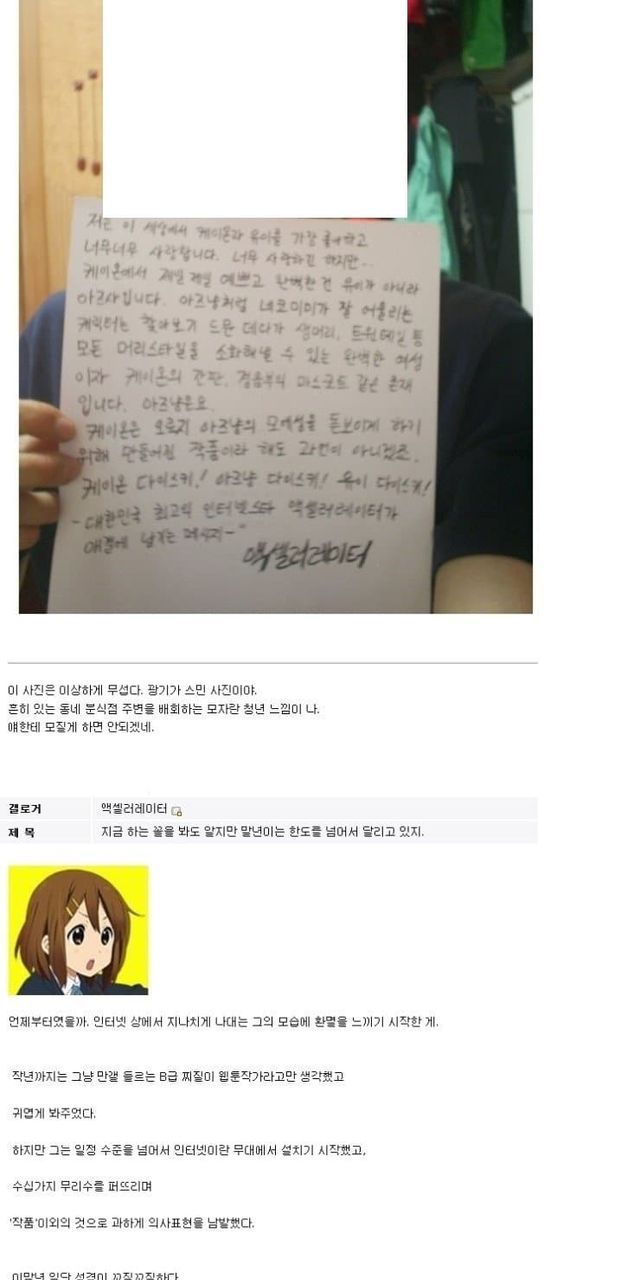 저는 이 세상에서 케이온과 유이를 가장 좋아하고
너무너무 사랑합니다. 너무 사랑하긴 하지만...
케이온에서 제일 제일 예쁘고 완벽한 건 유이가 아니라
아즈사입니다. 아즈냥처럼 네코미미가 잘 어울리는
캐릭터는 찾아보기 드문 데다가 생머리, 트윈테일 등
모든 머리스타일을 소화해낼 수 있는 완벽한 여성
이자 케이온의 간판, 경음부의 마스코트 같은 존재
입니다. 아즈냥은요.
케이온은 오로지 아즈냥의 모에성을 돋보이게 하기
위해 만들어진 작품이라 해도 과언이 아니겠죠.
케이온 다이스키! 아즈냥 다이스키! 유이 다이스키!
-대한민국 최고의 인터넷스타 액셀러레이터가
애갤에 남기는 메시지-"
액셀러레이터
이 사진은 이상하게 무섭다. 광기가 스민 사진이야.
흔히 있는 동네 분식점 주변을 배회하는 모자란 청년 느낌이 나.
얘한테 모질게 하면 안되겠네.
갤로거 액셀러레이터
제 목 지금 하는 꼴을 봐도 알지만 말년이는 한도를 넘어서 달리고 있지.
언제부터였을까. 인터넷 상에서 지나치게 나대는 그의 모습에 환멸을 느끼기 시작한 게.
작년까지는 그냥 만갤 들르는 B급 찌질이 웹툰작가라고만 생각했고
귀엽게 봐주었다.
하지만 그는 일정 수준을 넘어서 인터넷이란 무대에서 설치기 시작했고,
수십가지 무리수를 퍼뜨리며
'작품'이외의 것으로 과하게 의사표현을 남발했다.
이말년 일단 성격이 꼬질꼬질하다